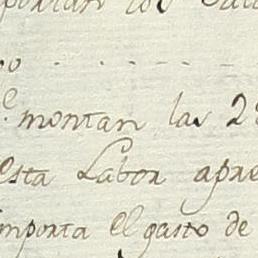 montan las 2
esta Labor apre
importa el gasto de